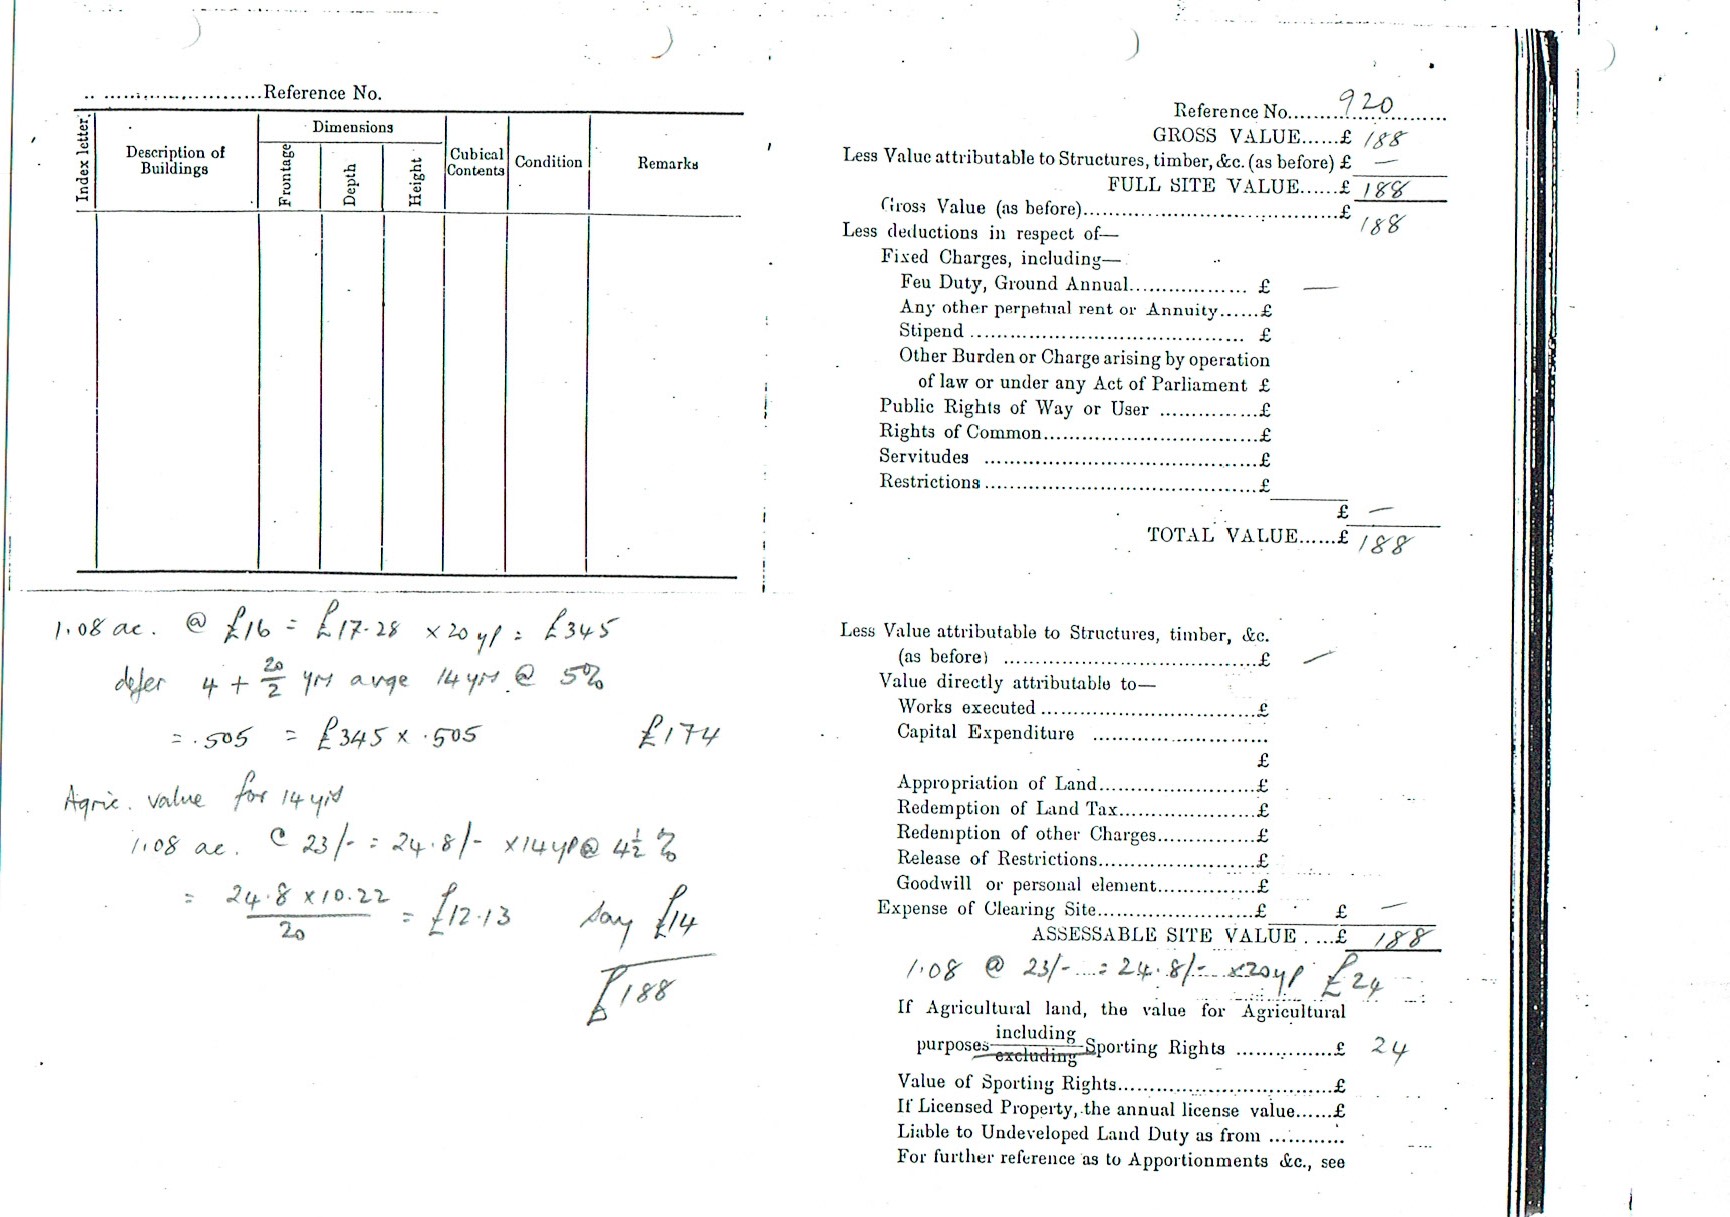 Reference No.
Index letter.
Description of Buildings
Dimensions
Frontage
Depth
Height
Cubical Contents
Condition
Remarks
1.08 ac. @ £16 = £17.28 x 20 yp = £345
defer 4 + 20/2 yrs avge 14 yrs @ 5%
= .505 = £345 x .505 £174
Agric. value for 14 yrs
1.08 ac. @ 23/- = 24.8/- x 14 yp @ 4½ %
= 24.8 x 10.22 / 20 = £12.13 say £14
£188
Reference No. 920
GROSS VALUE......£ 188
Less Value attributable to Structures, timber, &c. (as before) £ —
FULL SITE VALUE......£ 188
Gross Value (as before)..........£ 188
Less deductions in respect of—
Fixed Charges, including—
Feu Duty, Ground Annual.......... £ —
Any other perpetual rent or Annuity......£
Stipend .......... £
Other Burden or Charge arising by operation
of law or under any Act of Parliament £
Public Rights of Way or User ..........£
Rights of Common..........£
Servitudes ..........£
Restrictions..........£
£ —
TOTAL VALUE......£ 188
Less Value attributable to Structures, timber, &c.
(as before) ..........£ —
Value directly attributable to—
Works executed ..........£
Capital Expenditure ..........
£
Appropriation of Land..........£
Redemption of Land Tax..........£
Redemption of other Charges..........£
Release of Restrictions..........£
Goodwill or personal element..........£
Expense of Clearing Site..........£ £ —
ASSESSABLE SITE VALUE ....£ 188
1.08 @ 23/- = 24.8/- x 20 yp £24
If Agricultural land, the value for Agricultural
purposes including / excluding Sporting Rights ..........£ 24
Value of Sporting Rights..........£
If Licensed Property, the annual license value......£
Liable to Undeveloped Land Duty as from ..........
For further reference as to Apportionments &c., see